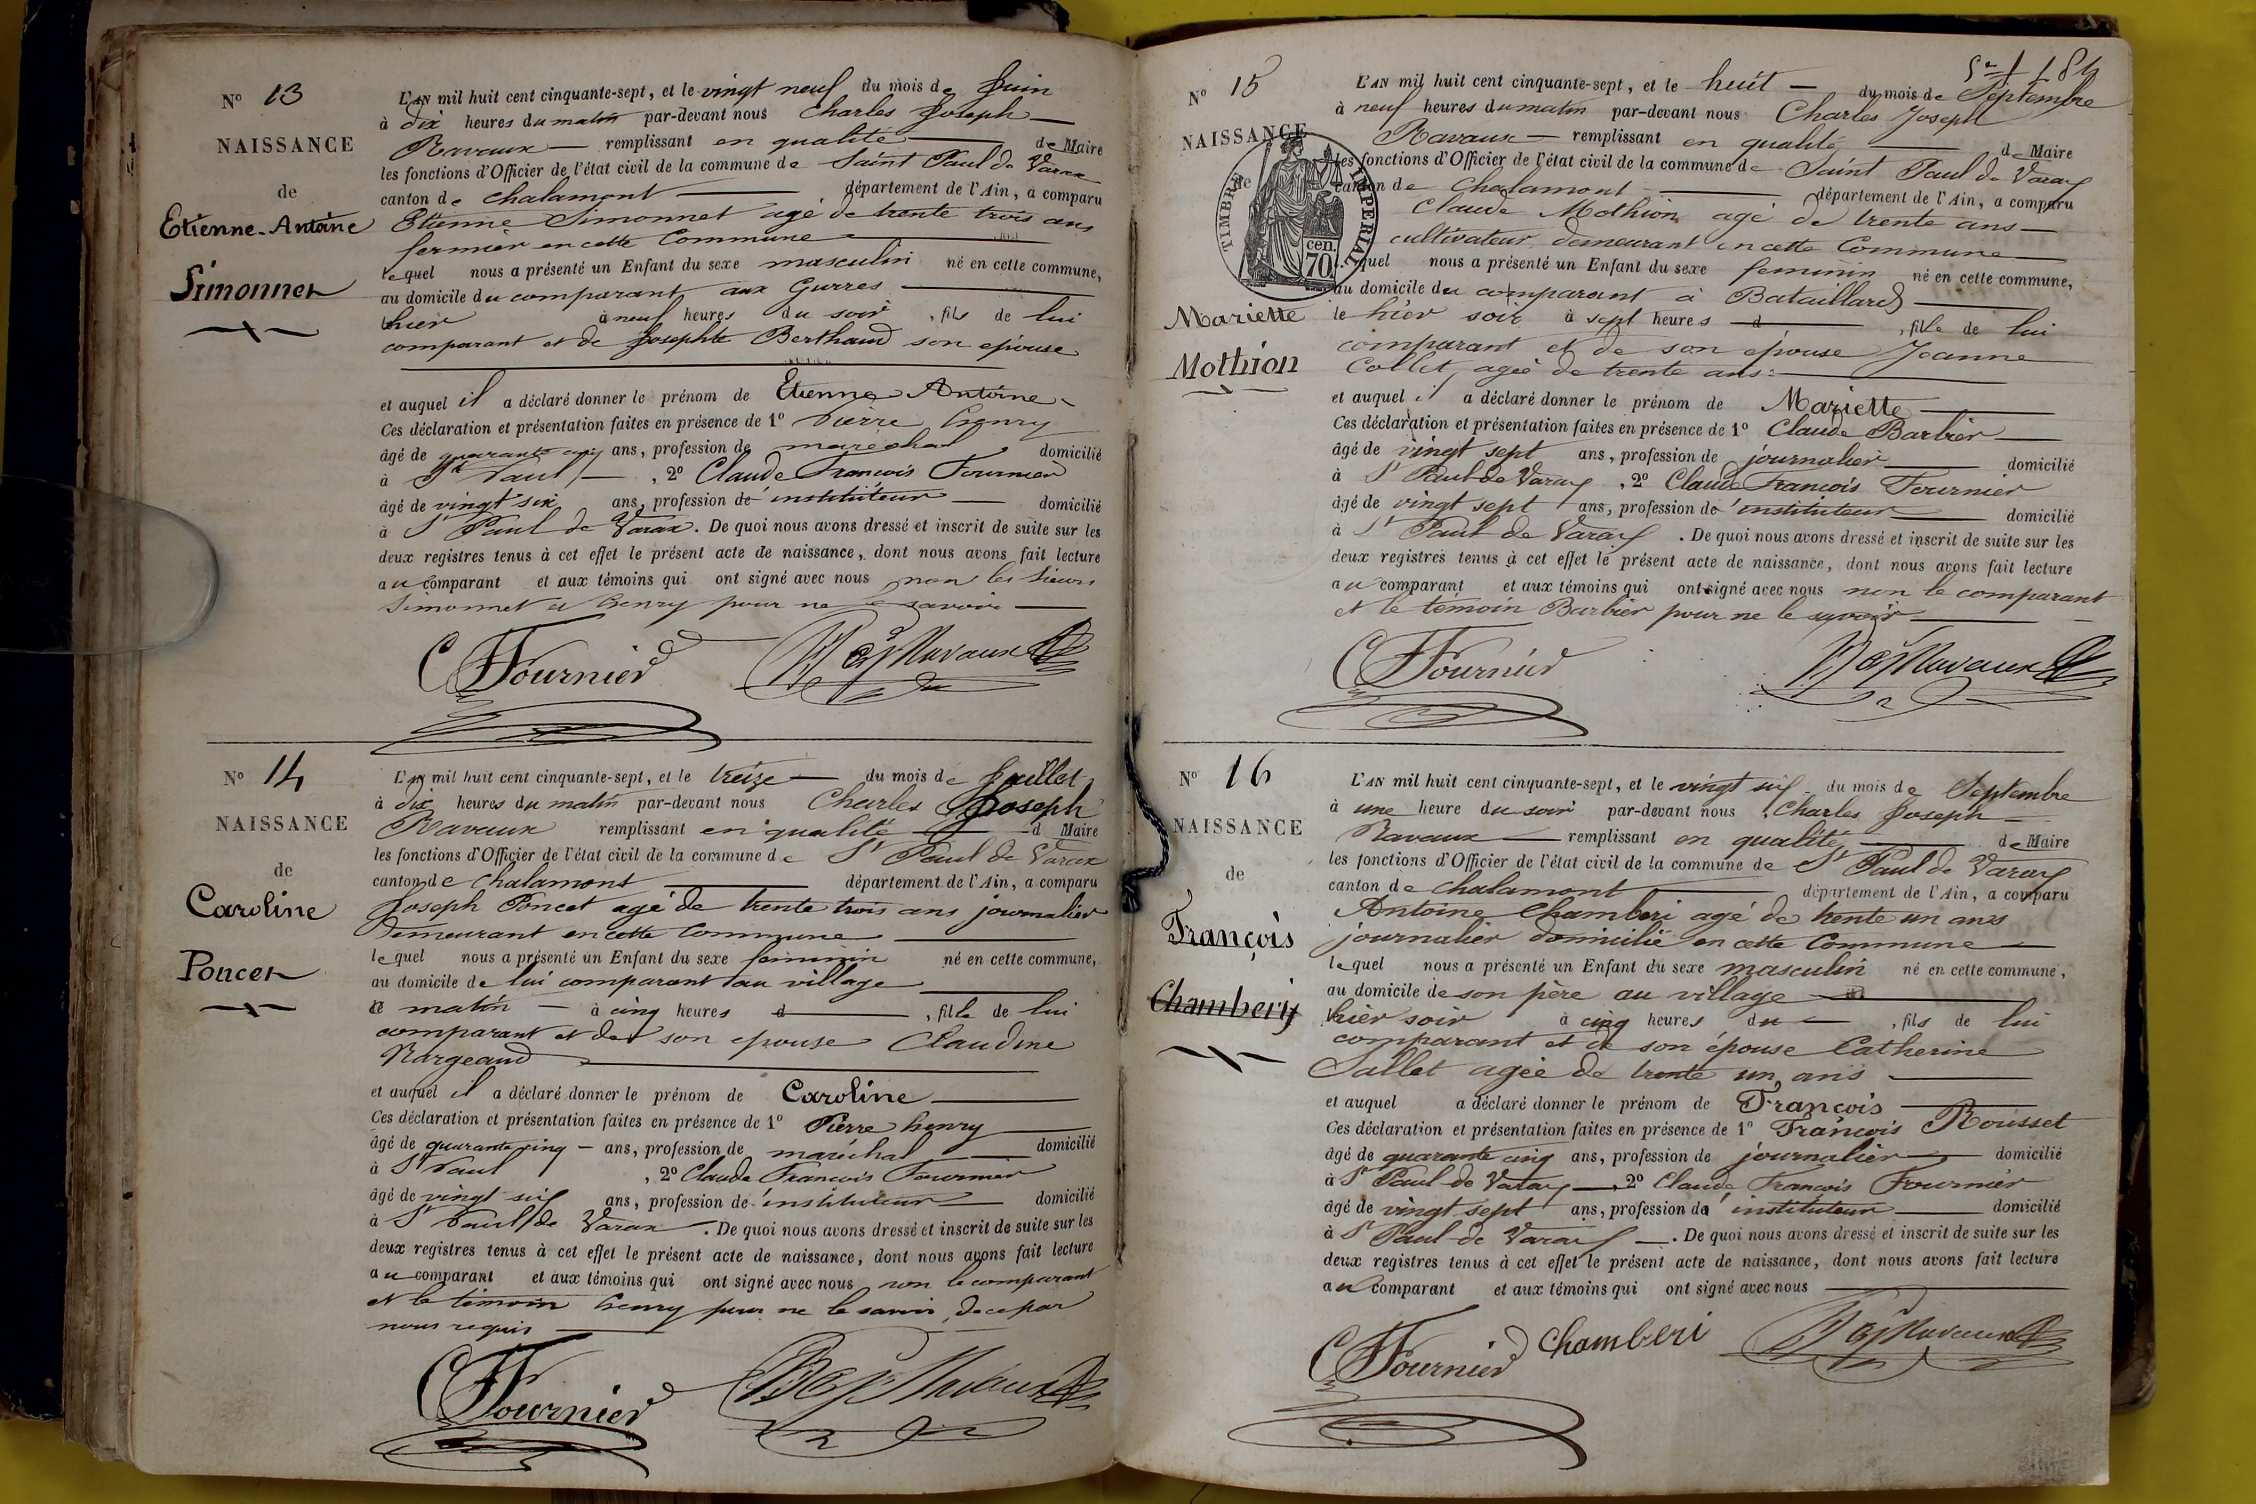 N° 13
NAISSANCE
de
Etienne-Antoine
Simonnet
L'AN mil huit cent cinquante-sept, et le vingt neuf du mois de Juin
à dix heures du matin par-devant nous Charles Joseph
Ravaux remplissant en qualité de Maire
les fonctions d'Officier de l'état civil de la commune de Saint Paul de Varax
canton de Chalamont département de l'Ain, a comparu
Etienne Simonnet agé de trente trois ans
fermier en cette Commune
lequel nous a présenté un Enfant du sexe masculin né en cette commune,
au domicile du comparant aux Gurres
hier à neuf heures du soir, fils de lui
comparant et de Josephte Berthaud son epouse
et auquel il a déclaré donner le prénom de Etienne Antoine
Ces déclaration et présentation faites en présence de 1° Pierre henry
âgé de quarante cinq ans, profession de maréchal domicilié
à St Paul, 2° Claude François Fournier
âgé de vingt six ans, profession de instituteur domicilié
à St Paul de Varax. De quoi nous avons dressé et inscrit de suite sur les
deux registres tenus à cet effet le présent acte de naissance, dont nous avons fait lecture
au comparant et aux témoins qui ont signé avec nous non les Sieurs
Simonnet et henry pour ne le savoir
C F Fournier Ravaux
N° 14
NAISSANCE
de
Caroline
Poncet
L'AN mil huit cent cinquante-sept, et le treize du mois de Juillet
à dix heures du matin par-devant nous Charles Joseph
Ravaux remplissant en qualité d Maire
les fonctions d'Officier de l'état civil de la commune de St Paul de Varax
canton de Chalamont département de l'Ain, a comparu
Joseph Poncet agé de trente trois ans journalier
demeurant en cette Commune
lequel nous a présenté un Enfant du sexe feminin né en cette commune,
au domicile de lui comparant au village
ce matin à cinq heures d, fille de lui
comparant et de son epouse Claudine
Nargeaud
et auquel il a déclaré donner le prénom de Caroline
Ces déclaration et présentation faites en présence de 1° Pierre henry
âgé de quarante cinq ans, profession de maréchal domicilié
à St Paul, 2° Claude François Fournier
âgé de vingt six ans, profession de instituteur domicilié
à St Paul de Varax. De quoi nous avons dressé et inscrit de suite sur les
deux registres tenus à cet effet le présent acte de naissance, dont nous avons fait lecture
au comparant et aux témoins qui ont signé avec nous non le comparant
et le témoin henry pour ne le savoir, de ce par
nous requis
C F Fournier Ravaux
N° 15
NAISSANCE
de
TIMBRE IMPERIAL
70 cen.
Mariette
Mothion
L'AN mil huit cent cinquante-sept, et le huit du mois de Septembre
à neuf heures du matin par-devant nous Charles Joseph
Ravaux remplissant en qualité de Maire
les fonctions d'Officier de l'état civil de la commune de Saint Paul de Varax
canton de Chalamont département de l'Ain, a comparu
Claude Mothion agé de trente ans
cultivateur demeurant en cette Commune
lequel nous a présenté un Enfant du sexe feminin né en cette commune,
au domicile du comparant à Bataillard
le hier soir à sept heures d, fille de lui
comparant et de son epouse Jeanne
Collet, agée de trente ans
et auquel il a déclaré donner le prénom de Mariette
Ces déclaration et présentation faites en présence de 1° Claude Barbier
âgé de vingt sept ans, profession de journalier domicilié
à St Paul de Varax, 2° Claude François Fournier
âgé de vingt sept ans, profession de instituteur domicilié
à St Paul de Varax. De quoi nous avons dressé et inscrit de suite sur les
deux registres tenus à cet effet le présent acte de naissance, dont nous avons fait lecture
au comparant et aux témoins qui ont signé avec nous non le comparant
et le témoin Barbier pour ne le savoir
C F Fournier Ravaux
N° 16
NAISSANCE
de
François
Chambery
L'AN mil huit cent cinquante-sept, et le vingt six du mois de Septembre
à une heure du soir par-devant nous Charles Joseph
Ravaux remplissant en qualité de Maire
les fonctions d'Officier de l'état civil de la commune de St Paul de Varax
canton de Chalamont département de l'Ain, a comparu
Antoine Chamberi agé de trente un ans
journalier domicilié en cette Commune
lequel nous a présenté un Enfant du sexe masculin né en cette commune,
au domicile de son père au village
hier soir à cinq heures du, fils de lui
comparant et de son épouse Catherine
Sallet agée de trente un ans
et auquel a déclaré donner le prénom de François
Ces déclaration et présentation faites en présence de 1° François Rousset
âgé de quarante cinq ans, profession de journalier domicilié
à St Paul de Varax, 2° Claude François Fournier
âgé de vingt sept ans, profession de instituteur domicilié
à St Paul de Varax. De quoi nous avons dressé et inscrit de suite sur les
deux registres tenus à cet effet le présent acte de naissance, dont nous avons fait lecture
au comparant et aux témoins qui ont signé avec nous
C F Fournier Chamberi Ravaux